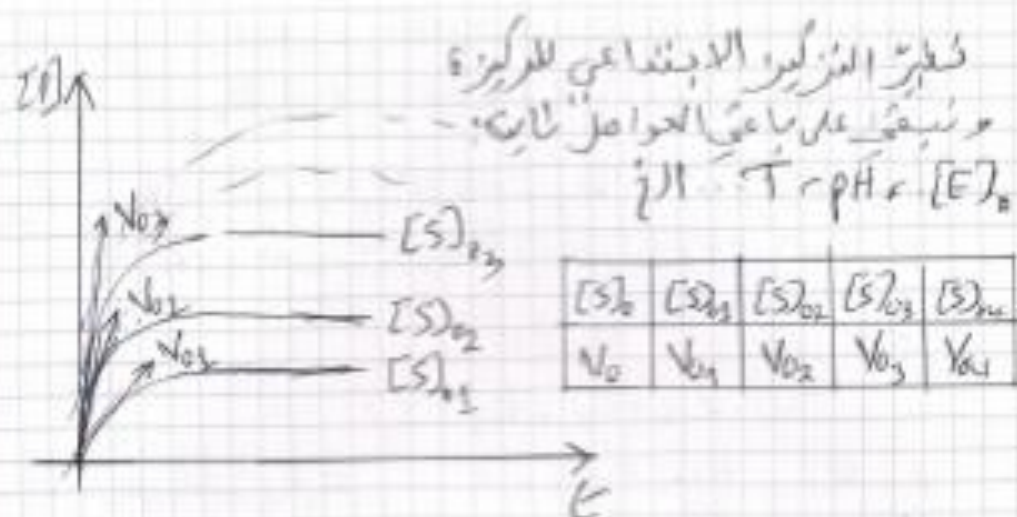 نغير التركيز الابتدائي للركيزة
و نبقي على باقي العوامل ثابتة.
[E]₀ ، pH - T ... الخ
[P]
V₀₃
V₀₂
V₀₁
[S]₀₃
[S]₀₂
[S]₀₁
t
[S]₀ [S]₀₁ [S]₀₂ [S]₀₃ [S]₀₄
V₀ V₀₁ V₀₂ V₀₃ V₀₄